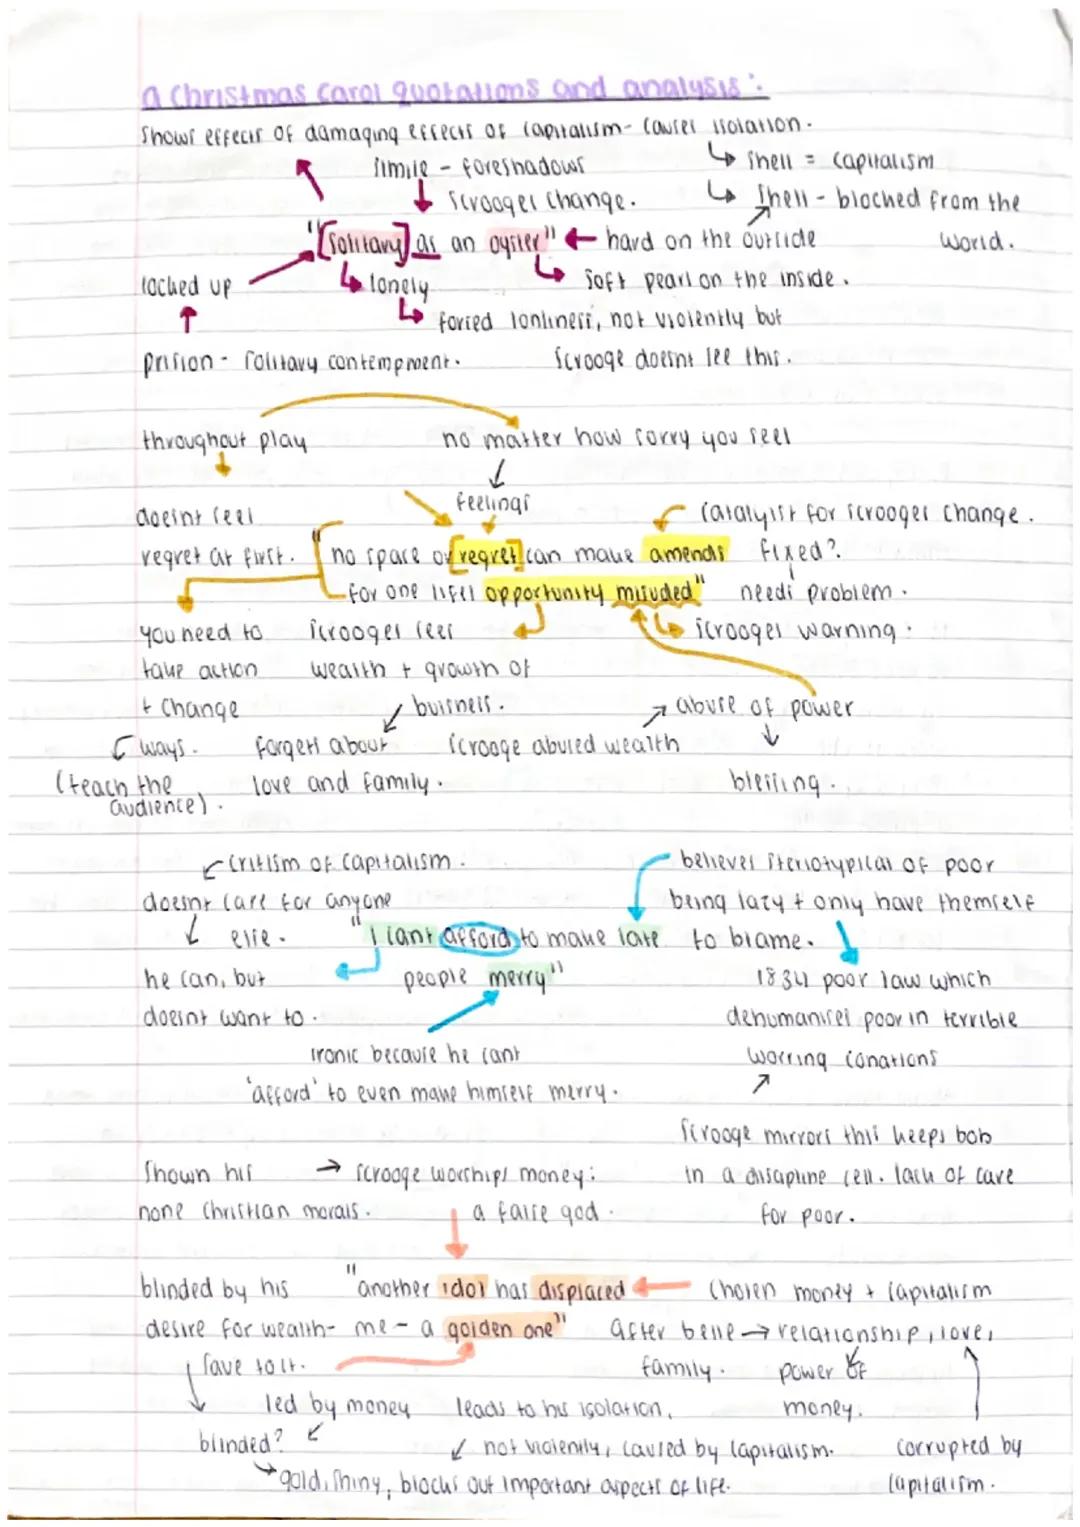 a Christmas Carol quotations and analysis:
Shows effects of damaging effects of capitalism- causes isolation.
simile - foreshadows
↳ shell = capitalism
scrooges change.
↳ Shell - blocked from the
"[solitary] as an oyster" ← hard on the outside
world.
locked up
↳ lonely
↳ soft pearl on the inside.
↳ forced lonliness, not violently but
prision- solitary contempment.
scrooge doesnt see this.
throughout play
no matter how sorry you feel
feelings
doesnt feel
catalyist for scrooges change.
regret at first.
"no space of [regret] can make amends
fixed?
for one lifes opportunity misused"
needs problem.
you need to
scrooges sees
↳ scrooges warning.
take action
wealth + growth of
+ change
buisness.
abuse of power
ways.
forgets about
scrooge abused wealth
(teach the
love and family.
blessing.
audience).
critism of capitalism.
believes steriotypical of poor
doesnt care for anyone
being lazy + only have themself
else.
"I cant afford to make late
to blame.
he can, but
people merry"
1834 poor law which
doesnt want to.
dehumanises poor in terrible
ironic because he cant
worring conations
'afford' to even make himself merry.
scrooge mirrors this keeps bob
Shown his
→ scrooge worships money:
in a disapline cell. lack of care
none Christian morals.
a false god.
for poor.
blinded by his
"another idol has displaced
← chosen money + capitalism
desire for wealth-
me - a golden one"
after belle → relationship, love,
save to it.
family.
power of
led by money
leads to his isolation,
money.
blinded?
not violently, caused by capitalism.
corrupted by
gold, shiny, blocks out important aspects of life.
capitalism.